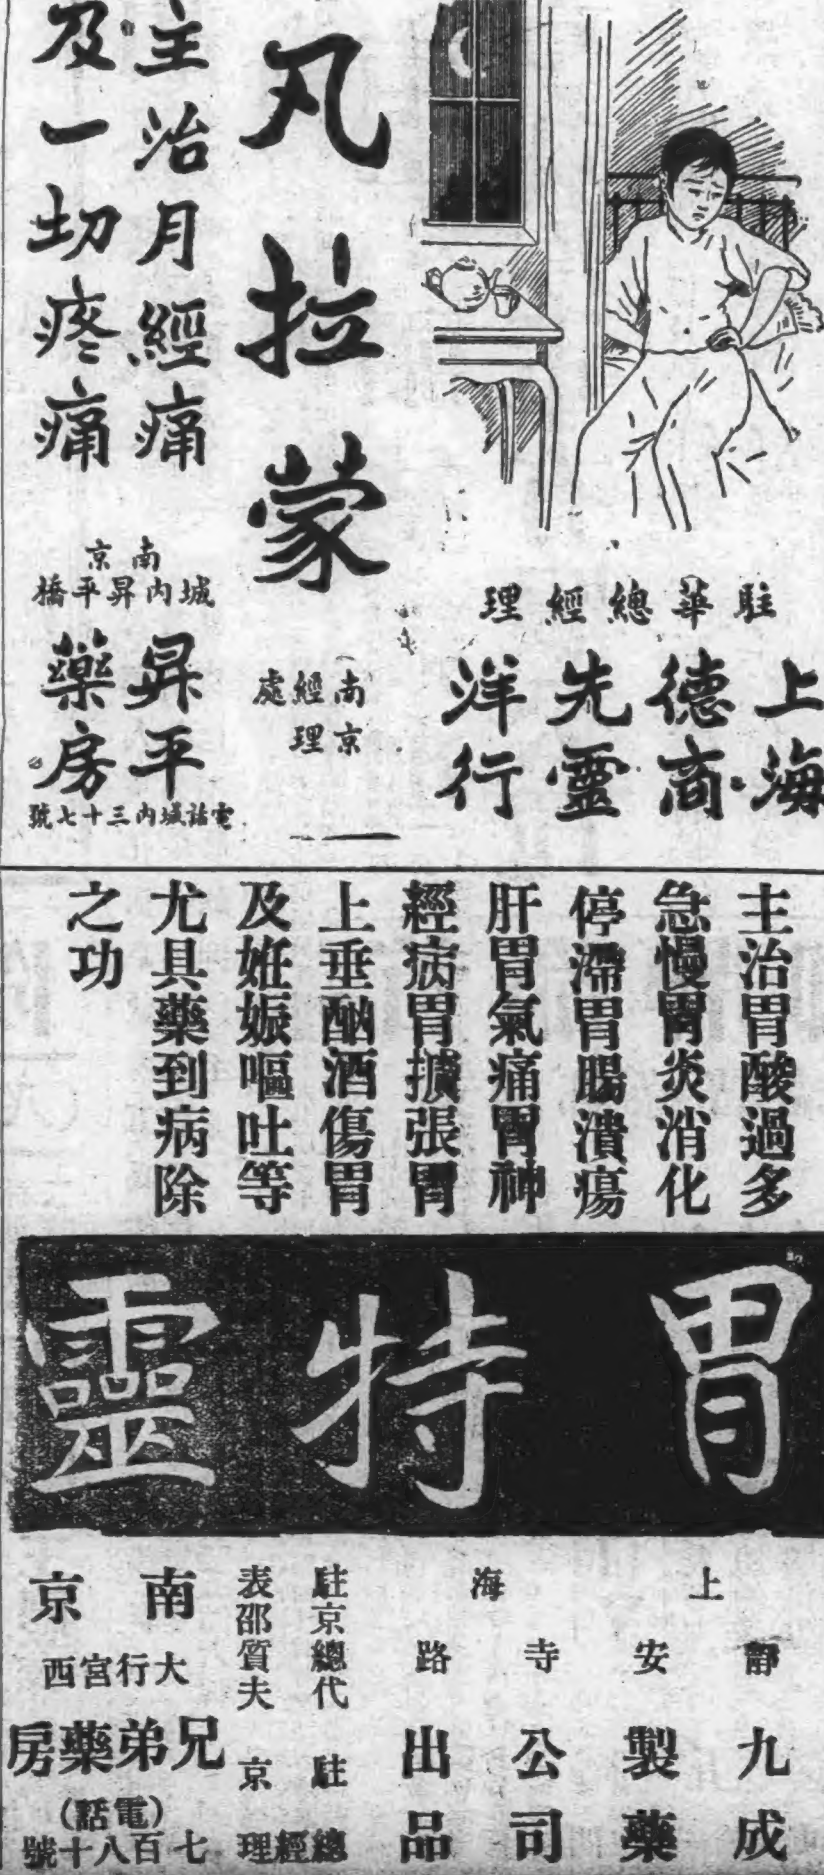 駐華總經理
上海
德商
先靈
洋行
凡拉蒙
南京
經理
處
主治月經痛
及一切疼痛
南京
城內昇平橋
昇平
藥房
電話城內三十七號
主治胃酸過多
急慢胃炎消化
停滯胃腸潰瘍
肝胃氣痛胃神
經病胃擴張胃
上垂酗酒傷胃
及姙娠嘔吐等
尤具藥到病除
之功
胃特靈
上海
靜安寺路
九成
製藥
公司
出品
駐京總代
表邵質夫
駐京
總經理
南京
大行宮西
兄弟藥房
(電話)
七百八十號